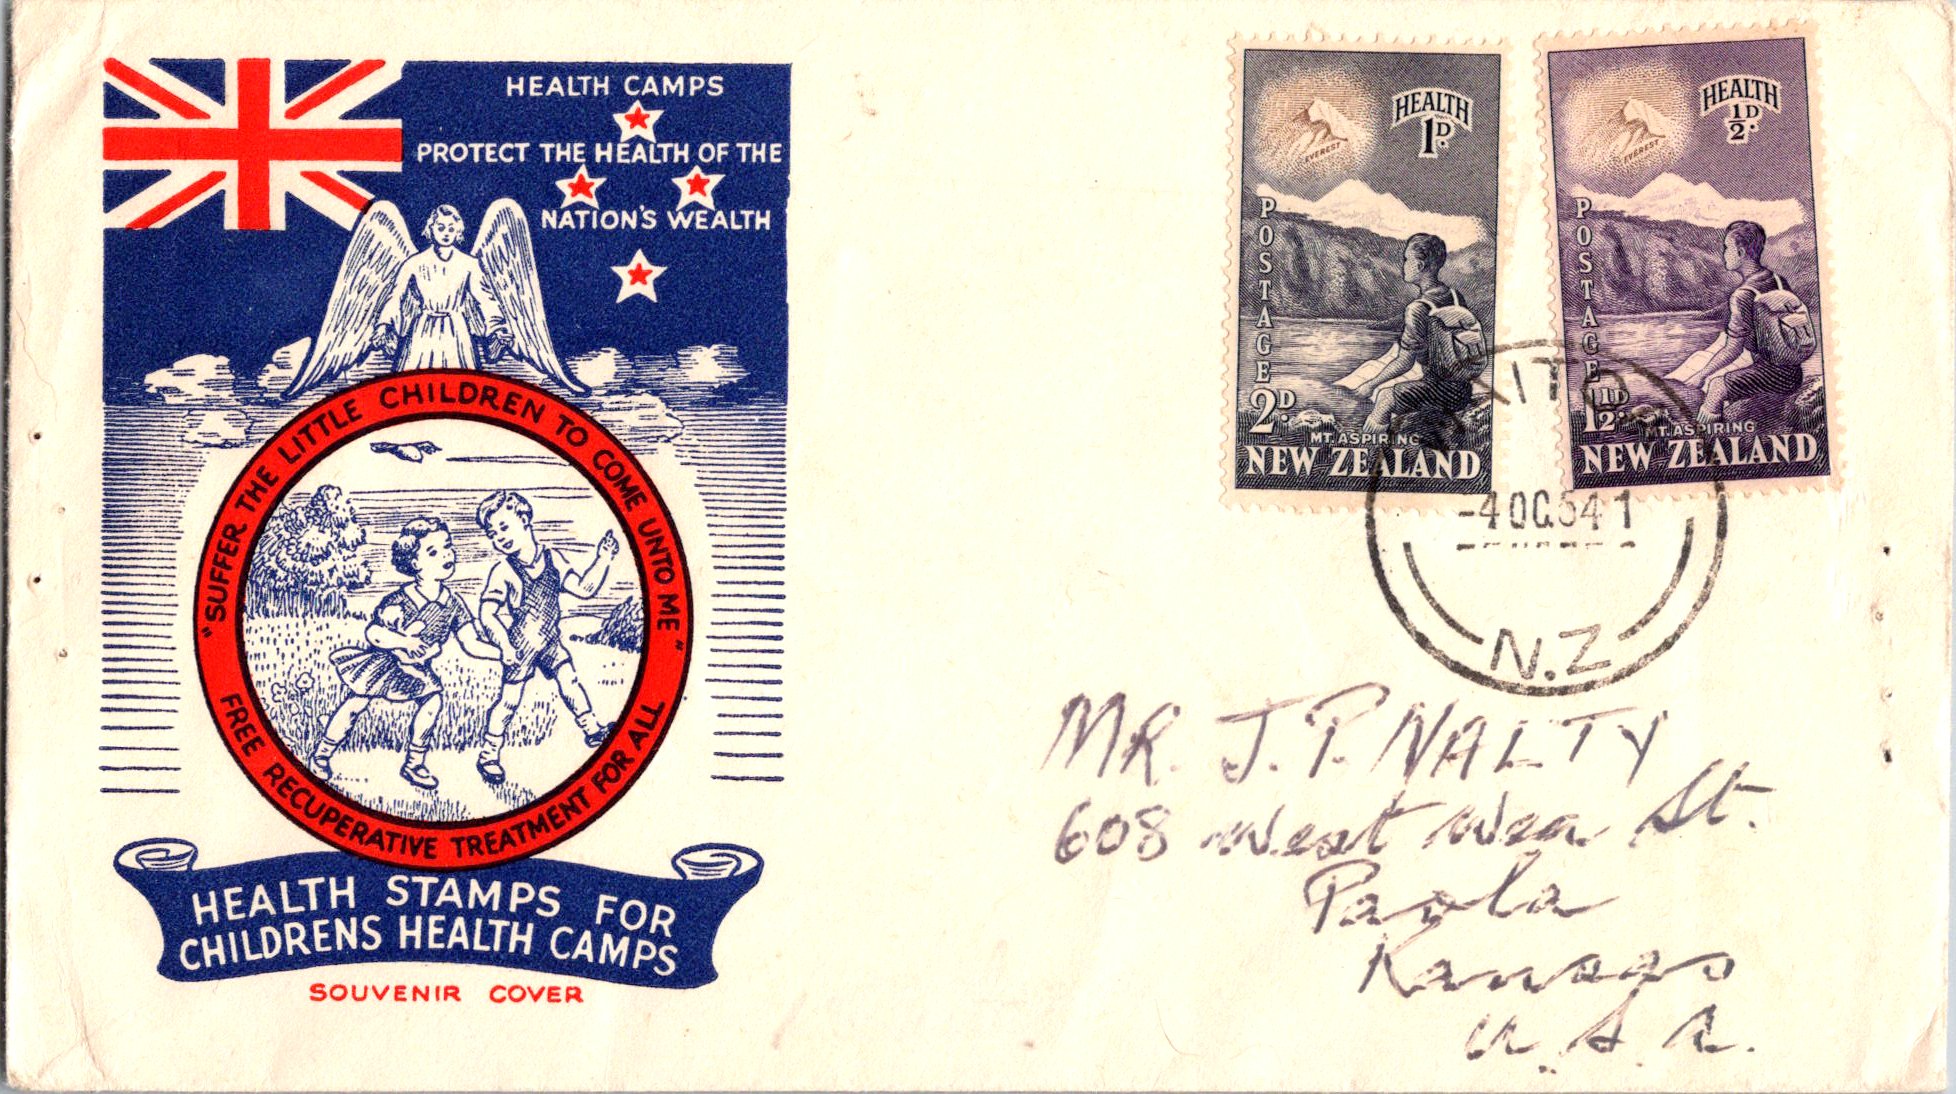 HEALTH CAMPS
PROTECT THE HEALTH OF THE
NATION'S WEALTH
"SUFFER THE LITTLE CHILDREN TO COME UNTO ME"
FREE RECUPERATIVE TREATMENT FOR ALL
HEALTH STAMPS FOR
CHILDRENS HEALTH CAMPS
SOUVENIR COVER
EVEREST
HEALTH
1D.
POSTAGE
2D.
MT. ASPIRING
NEW ZEALAND
EVEREST
HEALTH
½D.
POSTAGE
1½D
MT. ASPIRING
NEW ZEALAND
-4 OC 54 1
N.Z
MR. J. P. NALTY
608 West Wea St.
Paola
Kansas
U.S.A.